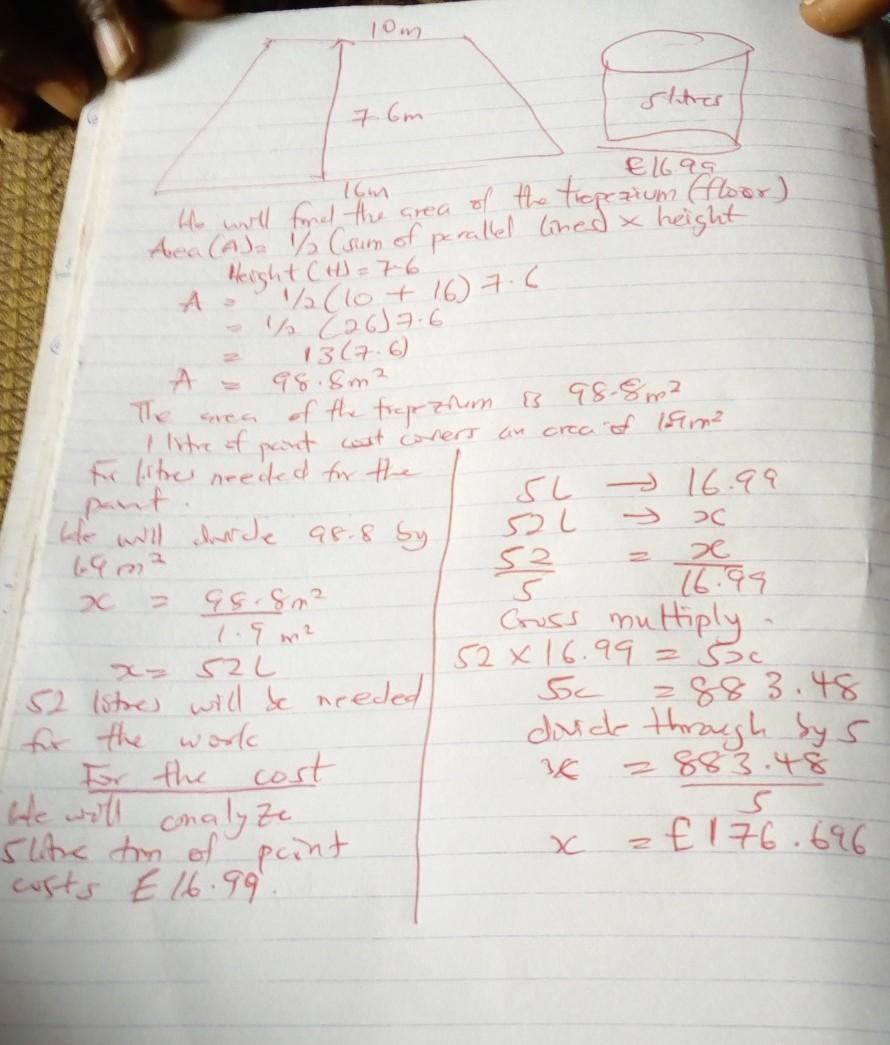 10m
7.6m
5 litres
£16.99
16m
We will find the area of the trapezium (floor)
Area (A) = 1/2 (sum of parallel lines) x height
Height (H) = 7.6
A = 1/2 (10 + 16) 7.6
= 1/2 (26) 7.6
= 13 (7.6)
A = 98.8m²
The area of the trapezium is 98.8m²
1 litre of paint covers an area of 1.9m²
litres needed for the
paint.
We will divide 98.8 by
1.9 m²
x = 98.8m²
1.9 m²
x = 52L
52 litres will be needed
for the work
For the cost
We will analyze
5 litre tin of paint
costs £16.99.
5L → 16.99
52L → x
52 = x
5 16.99
Cross multiply.
52 x 16.99 = 5x
5x = 883.48
divide through by 5
x = 883.48
5
x = £176.696